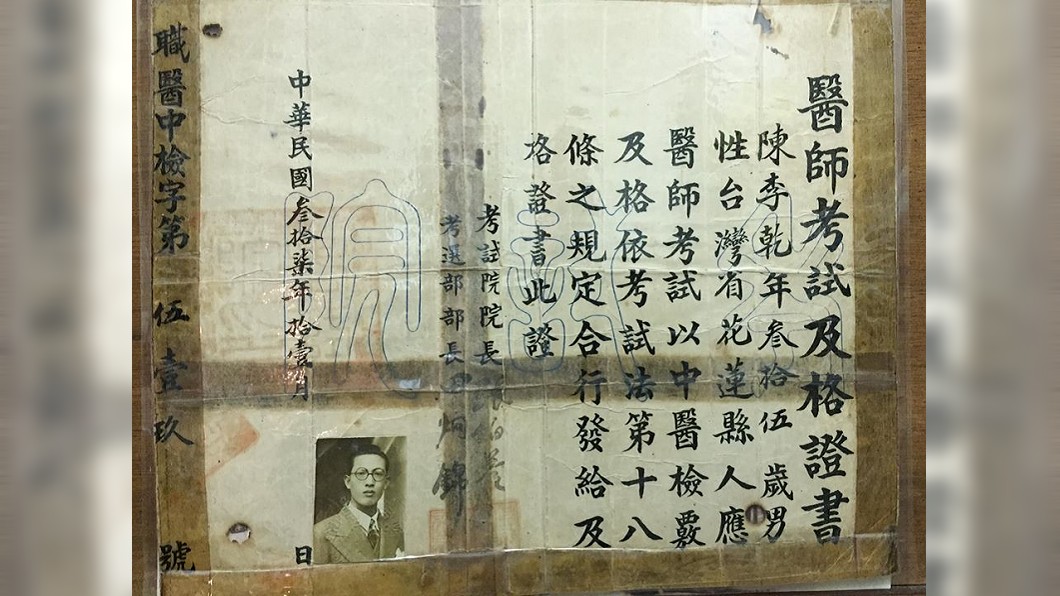 醫師考試及格證書
陳李乾年叁拾伍歲男
性台灣省花蓮縣人應
醫師考試以中醫檢覈
及格依考試法第十八
條之規定合行發給及
格證書此證
考試院院長
考選部部長田炯錦
中華民國叁拾柒年拾壹月 日
職醫中檢字第 伍壹玖 號